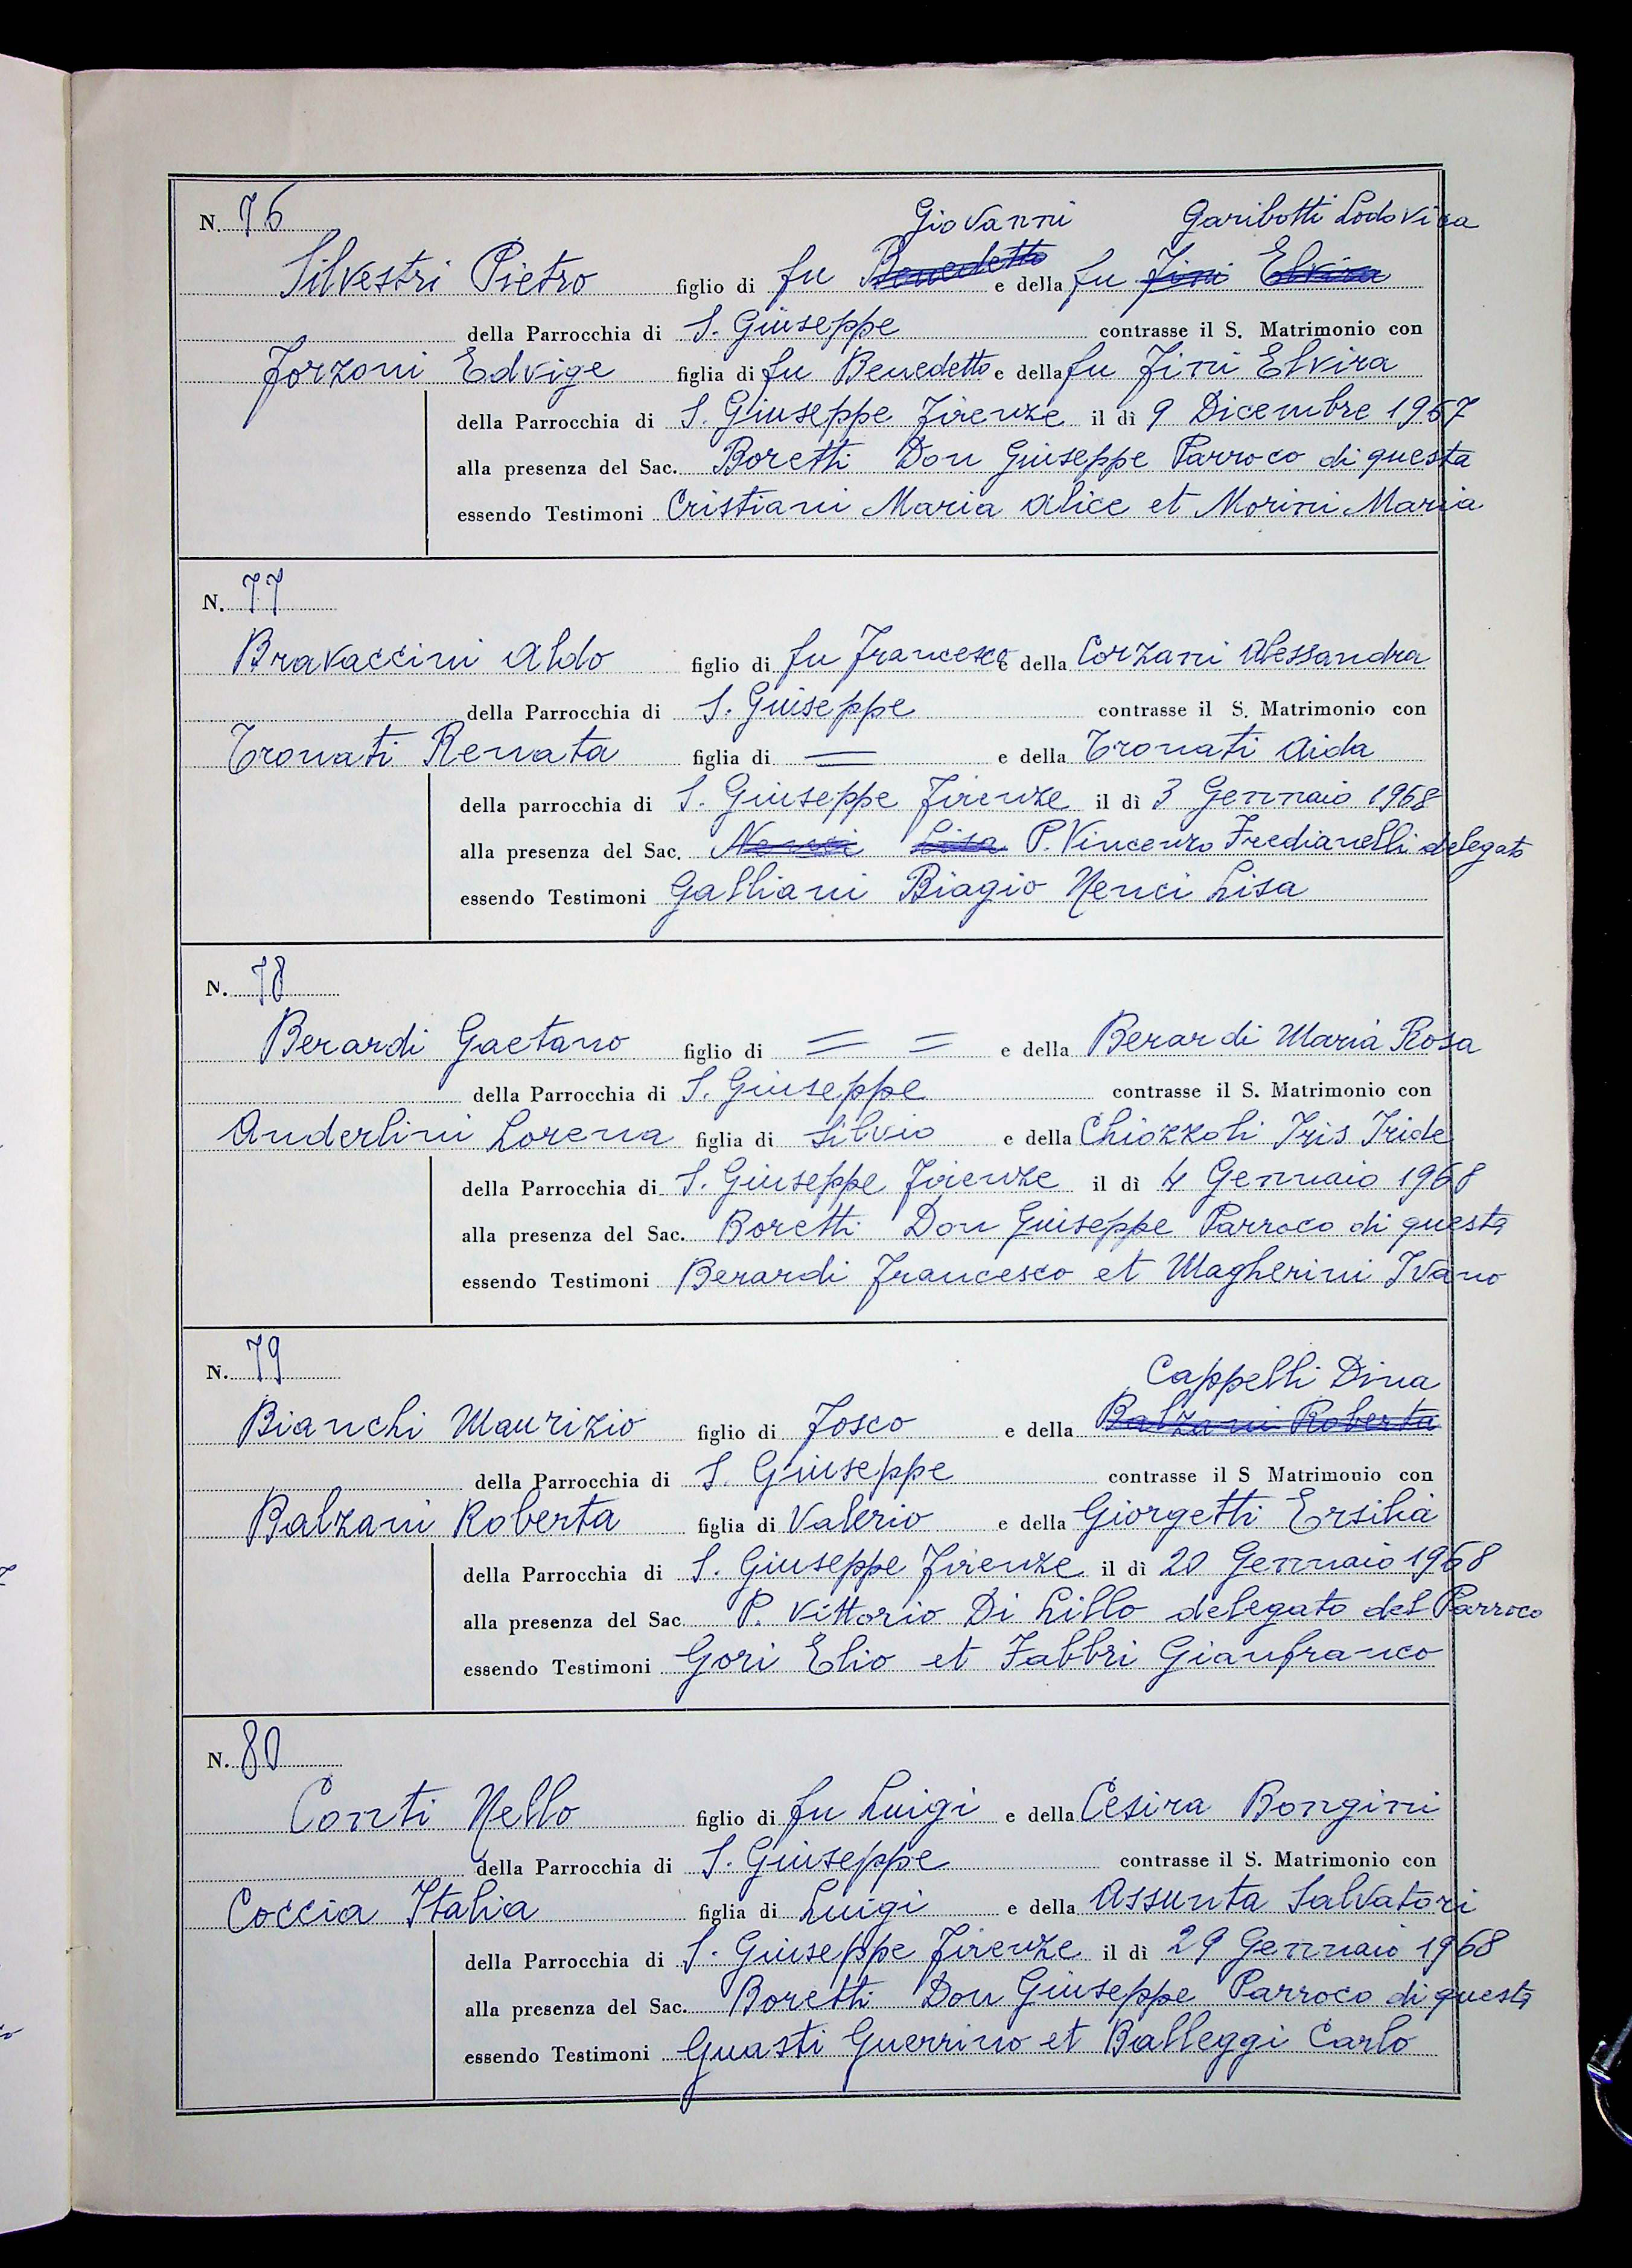 N. 76
Giovanni Garibotti Lodovica
Silvestri Pietro figlio di fu Benedetto e della fu Fini Elvira
della Parrocchia di S. Giuseppe contrasse il S. Matrimonio con
Forzoni Edvige figlia di fu Benedetto e della fu Fini Elvira
della Parrocchia di S. Giuseppe Firenze il dì 9 Dicembre 1967
alla presenza del Sac. Boretti Don Giuseppe Parroco di questa
essendo Testimoni Cristiani Maria Alice et Morini Maria
N. 77
Bravaccini Aldo figlio di fu Francesco e della Corzani Alessandra
della Parrocchia di S. Giuseppe contrasse il S. Matrimonio con
Tronati Renata figlia di = e della Tronati Aida
della parrocchia di S. Giuseppe Firenze il dì 3 Gennaio 1968
alla presenza del Sac. Nenci Lisa P. Vincenzo Fredianelli delegato
essendo Testimoni Galliani Biagio Nenci Lisa
N. 78
Berardi Gaetano figlio di = = e della Berardi Maria Rosa
della Parrocchia di S. Giuseppe contrasse il S. Matrimonio con
Anderlini Lorena figlia di Silvio e della Chiozzoli Iris Iride
della Parrocchia di S. Giuseppe Firenze il dì 4 Gennaio 1968
alla presenza del Sac. Boretti Don Giuseppe Parroco di questa
essendo Testimoni Berardi Francesco et Magherini Ivano
N. 79
Cappelli Dina
Bianchi Maurizio figlio di Fosco e della Balzani Roberta
della Parrocchia di S. Giuseppe contrasse il S Matrimonio con
Balzani Roberta figlia di Valerio e della Giorgetti Ersilia
della Parrocchia di S. Giuseppe Firenze il dì 20 Gennaio 1968
alla presenza del Sac. P. Vittorio Di Lillo delegato del Parroco
essendo Testimoni Gori Elio et Fabbri Gianfranco
N. 80
Conti Nello figlio di fu Luigi e della Cesira Bongini
della Parrocchia di S. Giuseppe contrasse il S. Matrimonio con
Coccia Italia figlia di Luigi e della Assunta Salvatori
della Parrocchia di S. Giuseppe Firenze il dì 29 Gennaio 1968
alla presenza del Sac. Boretti Don Giuseppe Parroco di questa
essendo Testimoni Guasti Guerrino et Balleggi Carlo